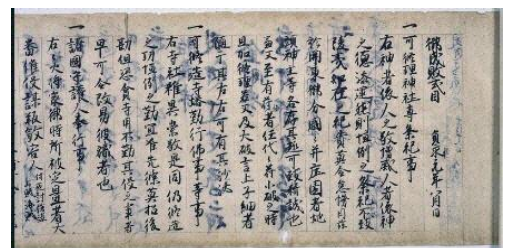 御成敗式目　貞永元年八月日
一可修理神社專祭祀事
右神者依人之敬增威人者依神
之德添運然則恒例之祭祀不致
陵夷如在之礼奠莫令怠慢因茲
於關東御分國々并庄園者地
頭神主等各存其趣可致精誠也
兼又至有封社者任代々符小破之時
且加修理若及大破言上子細者
隨于其左右可有其沙汰
一可修造寺塔勤行佛事等事
右寺社雖異崇敬是同仍修造
之功恒例之勤宜准先條莫招後
勘但恣貪寺用不勤其役之輩者
早可令改易彼職者也
一諸國守護人奉行事
右々大將家御時所被定置者大
番催促謀叛殺害人付夜討強盜山賊海賊